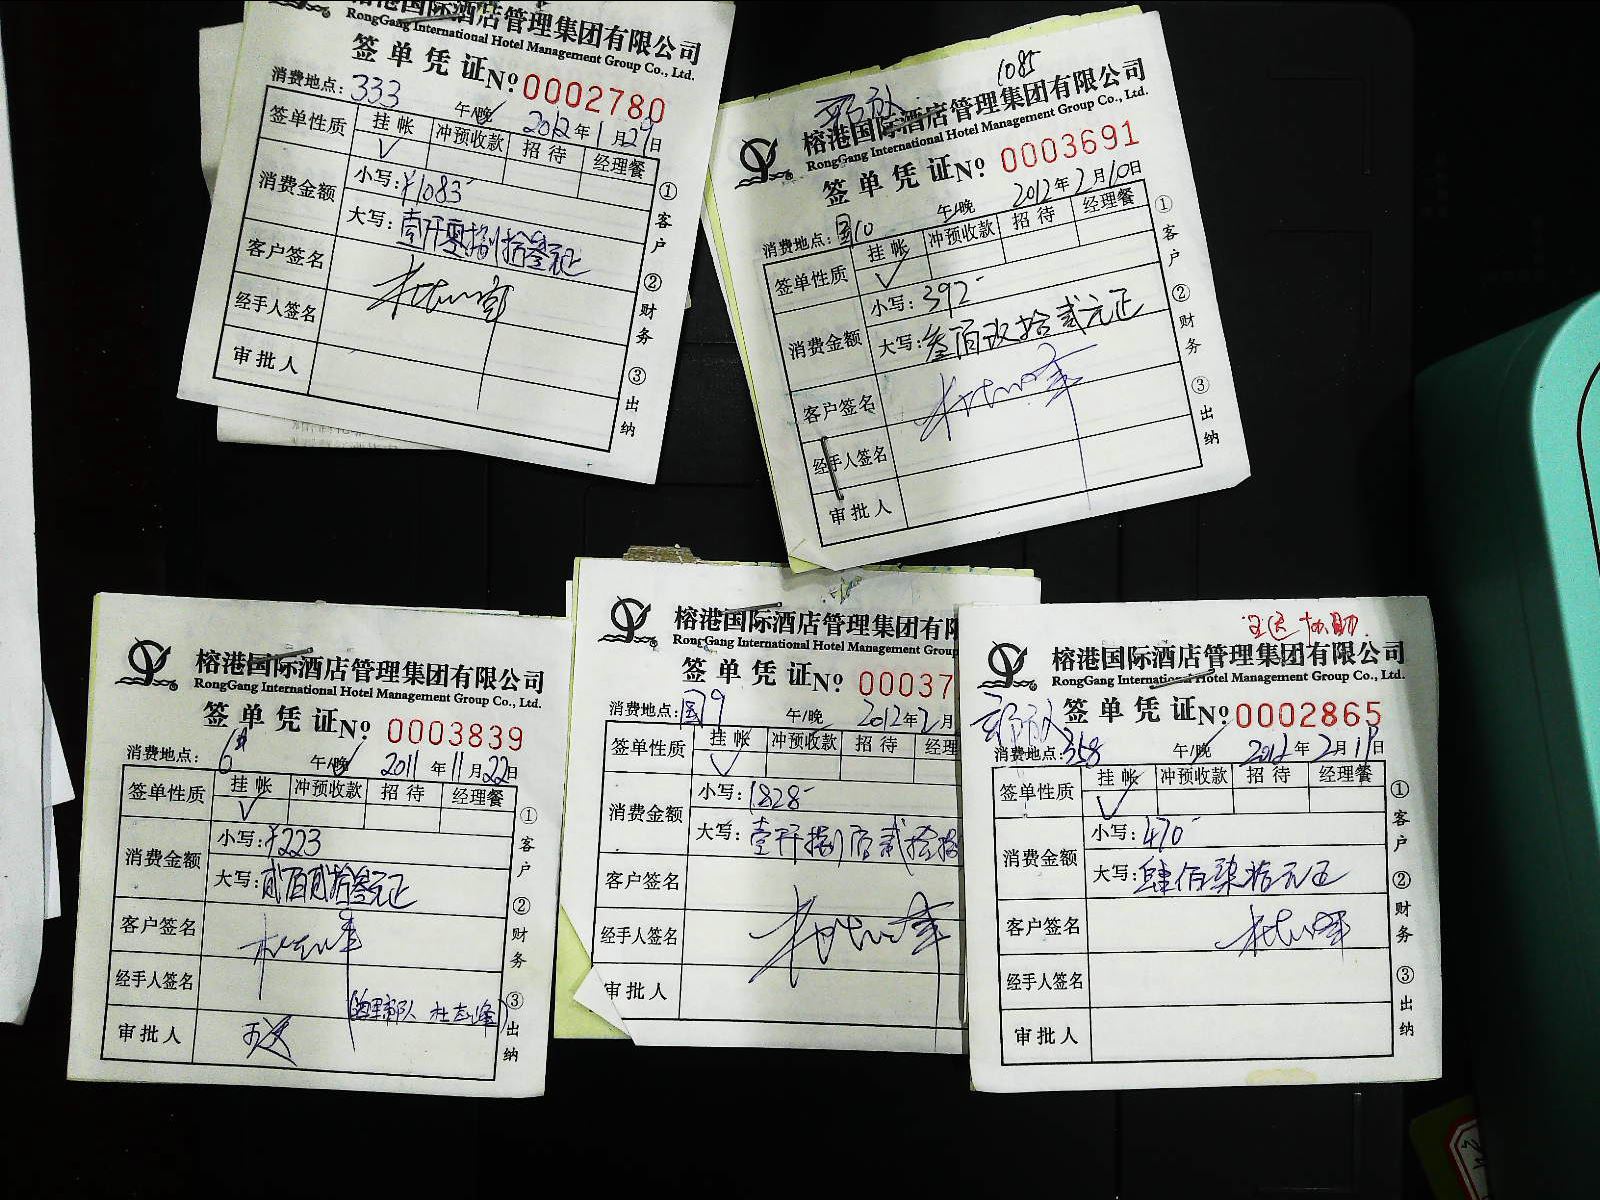 榕港国际酒店管理集团有限公司
RongGang International Hotel Management Group Co., Ltd.
签单凭证 № 0002780
消费地点：333 午/晚 2012年1月29日
签单性质 挂帐 冲预收款 招待 经理餐
消费金额 小写：¥1083-
大写：壹仟零捌拾叁元正
客户签名
经手人签名
审批人
①客户 ②财务 ③出纳
1085
榕港国际酒店管理集团有限公司
RongGang International Hotel Management Group Co., Ltd.
签单凭证 № 0003691
2012年2月10日
消费地点：国10 午/晚
签单性质 挂帐 冲预收款 招待 经理餐
消费金额 小写：392-
大写：叁佰玖拾贰元正
客户签名
经手人签名
审批人
①客户 ②财务 ③出纳
榕港国际酒店管理集团有限公司
RongGang International Hotel Management Group Co., Ltd.
签单凭证 № 0003839
消费地点： 午/晚 2011年11月22日
签单性质 挂帐 冲预收款 招待 经理餐
消费金额 小写：¥223
大写：贰佰贰拾叁元正
客户签名 杜志峰
经手人签名
杜志峰)
审批人
①客户 ②财务 ③出纳
榕港国际酒店管理集团有限
RongGang International Hotel Management Group
签单凭证 № 00037
消费地点：国9 午/晚 2012年2月
签单性质 挂帐 冲预收款 招待 经理
消费金额 小写：1828-
大写：壹仟捌佰贰拾捌
客户签名
经手人签名 杜志峰
审批人
协助
榕港国际酒店管理集团有限公司
RongGang International Hotel Management Group Co., Ltd.
签单凭证 № 0002865
消费地点：358 午/晚 2012年2月11日
签单性质 挂帐 冲预收款 招待 经理餐
消费金额 小写：470-
大写：肆佰柒拾元正
客户签名 杜志峰
经手人签名
审批人
①客户 ②财务 ③出纳